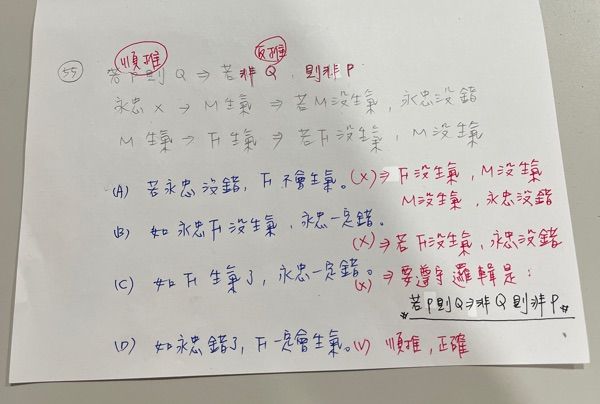 順推 反推
55 若P則Q ⇒ 若非Q，則非P
永忠 X → M 生氣 ⇒ 若M沒生氣，永忠沒錯
M 生氣 → F 生氣 ⇒ 若F沒生氣，M沒生氣
(A) 若永忠沒錯，F不會生氣。(X) ⇒ F沒生氣，M沒生氣
M沒生氣，永忠沒錯
(B) 如永忠F沒生氣，永忠一定錯。
(X) ⇒ 若F沒生氣，永忠沒錯
(C) 如F生氣了，永忠一定錯。(X) ⇒ 要遵守邏輯是：
若P則Q⇒非Q則非P
(D) 如永忠錯了，F一定會生氣。(V) 順推，正確